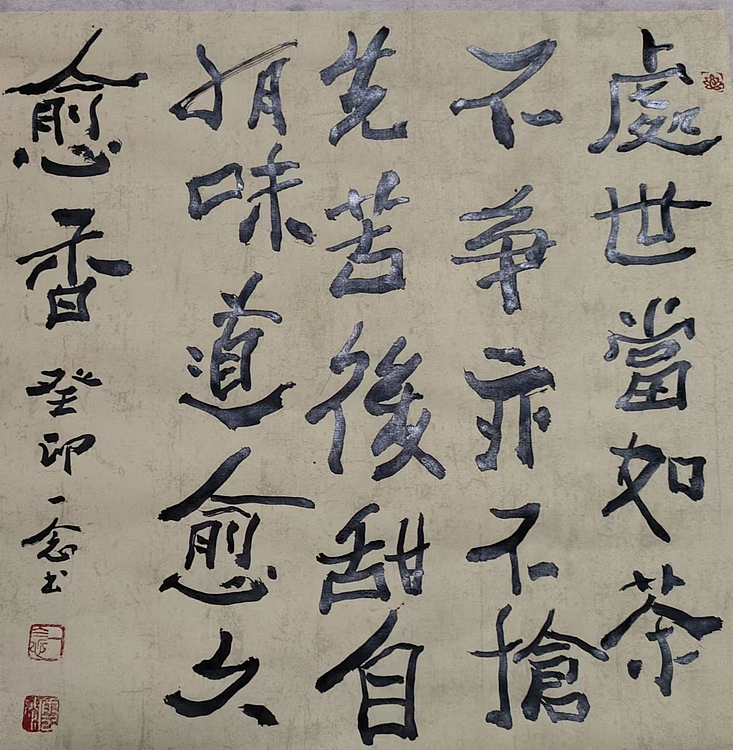 處世當如茶
不争亦不搶
先苦後甜自
有味道愈久
愈香
癸卯一念书